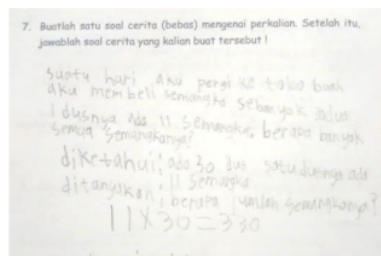 7. Buatlah satu soal cerita (bebas) mengenai perkalian. Setelah itu,
jawablah soal cerita yang kalian buat tersebut !
Suatu hari aku pergi ke toko buah
aku membeli semangka sebanyak
1 dusnya Ada 11 semangka, berapa banyak
semua semangkanya?
diketahui: ada 30 dus satu dusnya ada
11 semangka
ditanyakan: berapa jumlah semangkanya?
11X30=330